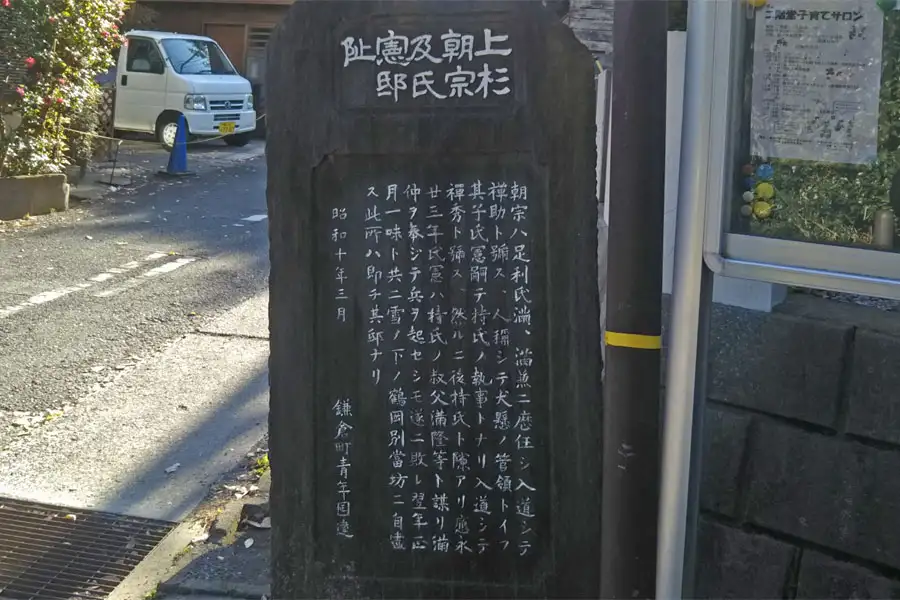 上杉
朝宗
及氏
憲邸
阯
朝宗ハ足利氏満、満兼ニ歴仕シ入道シテ
禅助ト號ス、人稱シテ犬懸ノ管領トイフ
其子氏憲嗣テ持氏ノ執事トナリ入道シテ
禪秀ト號ス、然ルニ後持氏ト隙アリ應永
廿三年氏憲ハ持氏ノ叔父満隆等ト謀リ満
仲ヲ奉シテ兵ヲ起セシモ遂ニ敗レ翌年正
月一味ト共ニ雪ノ下ノ鶴岡別當坊ニ自盡
ス此所ハ即チ其邸ナリ
昭和十年三月
鎌倉町青年団建
二階堂子育てサロン